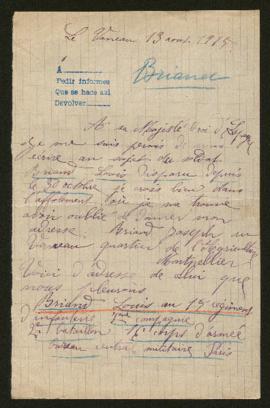 Le Vaneau 13 aout 1915
A
Pedir informes
Que se hace asi
Devolver
Briand
A sa Majesté le roi d'Espagne
je me suis permis de vous
écrire au sujet du soldat
Briand Louis disparu depuis
le 30 octobre je vois bien dans
l'affolement que je me trouve
avoir oublié de donner mon
adresse. Briand Joseph au
quartier de
Montpellier
Voici l'adresse de celui que
nous pleurons
Briand Louis au régiment
d'infanterie compagnie
2e bataillon 16e corps d'armée
bureau central militaire Paris